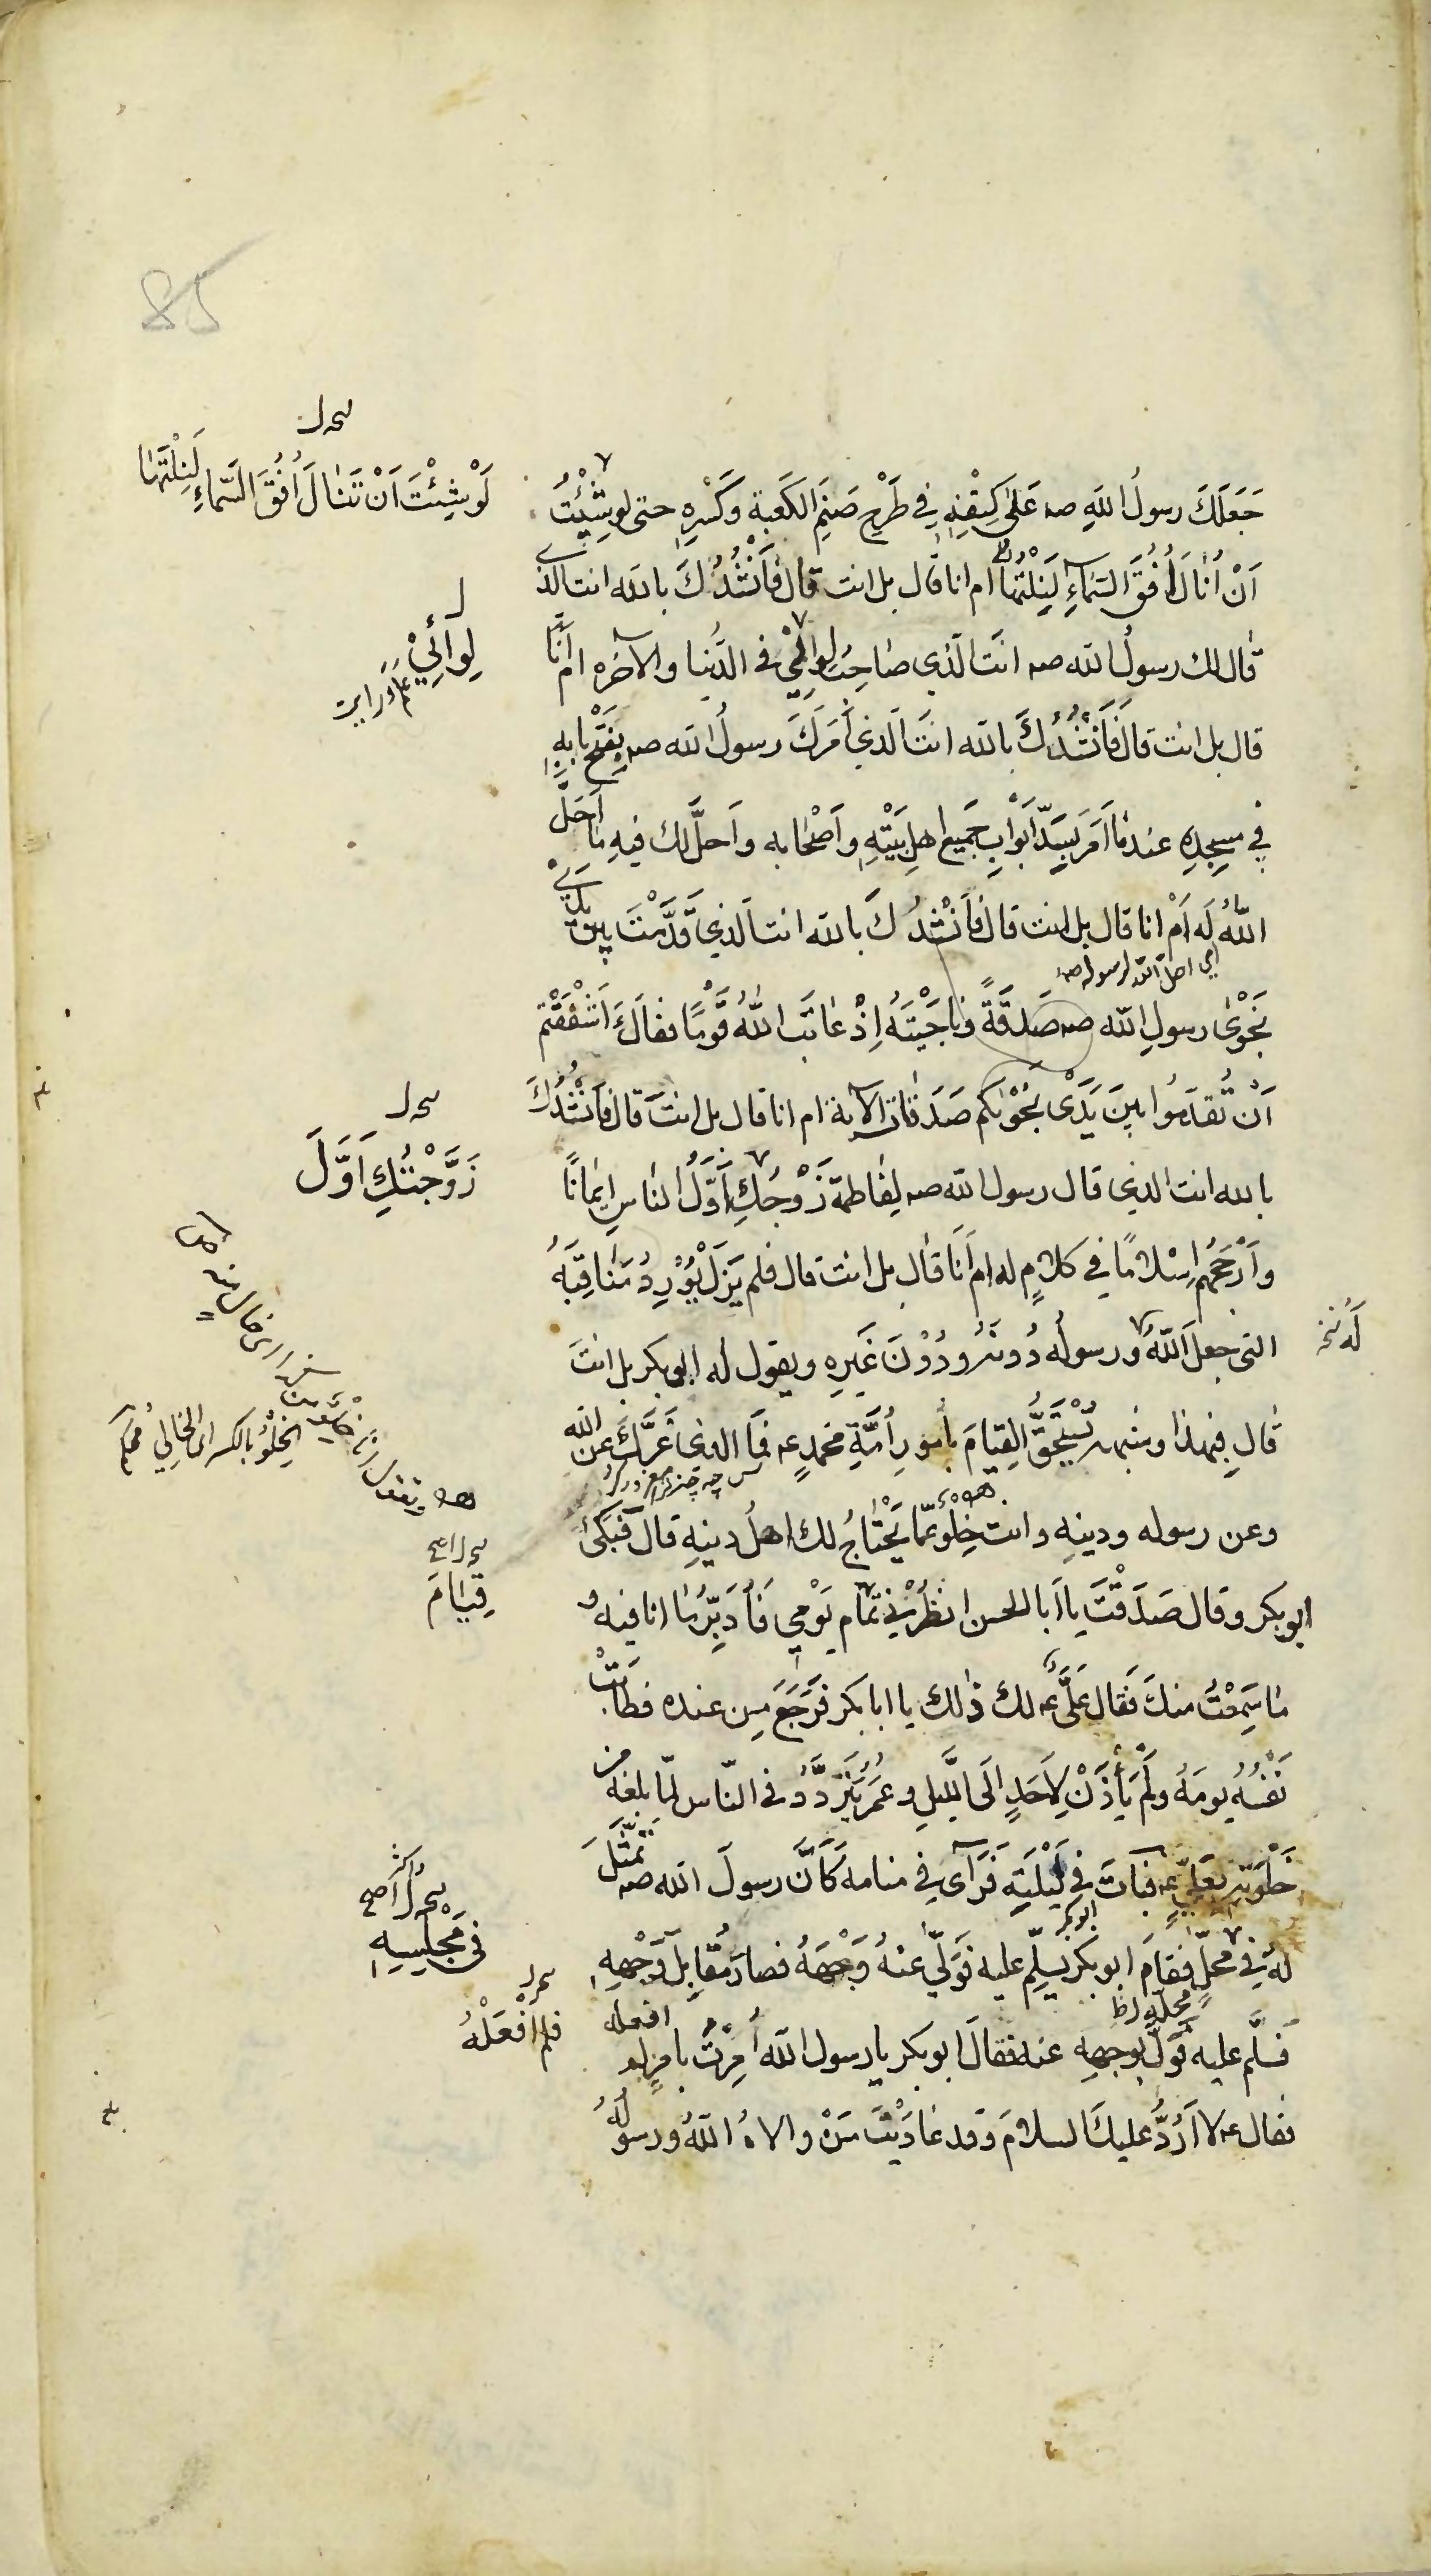 جَعَلَكَ رسولُ اللهِ صہ عَلىٰ كِتْفِهِ في طَرْحِ صَنَمِ الكَعبة وَكَسْرِهِ حتى لو شِئْتُ
اَنْ اَنٰالَ اُفُقَ السَّمٰآءِ لَنِلْتُهٰا ام انا قال بل انت قال فَاَنْشُدُكَ بالله انت الذي
قال لك رسولُ الله صہ انتَ الَّذي صٰاحِبُ لِوٰائِي في الدُّنيا والآخره ام اَنَا
قال بل انت قال فَاَنْشُدُكَ بالله انتَ الّذي اَمَرَكَ رسولُ الله صہ بِفَتْحِ بابِهِ
في مسجِدِهِ عندمٰا اَمَرَ بِسَدِّ اَبْوابِ جَميعِ اهلِ بَيْتِهِ وَاَصْحٰابه واَحلَّ لك فيهِ مٰا اَحَلَّ
اللّٰهُ لَه اَمْ انا قال بل انت قال فَاَنْشُدُكَ بالله انت الّذي قَدَّمْتَ بين يدي
اي احل الله لرسوله صہ
نَجْوىٰ رسولِ الله صہ صَدَقَةً ونٰاجَيْتَهُ اِذْ عٰاتَبَ اللّٰهُ قَوْمًا فقالَ ءَاَشْفَقْتُم
اَنْ تُقَدِّمُوا بينَ يَدَيْ نَجْوٰيكم صَدَقٰاتٍ الآية ام انا قال بل انتَ قال فَاَنْشُدُكَ
بالله انت الذي قال رسول الله صہ لِفٰاطمة زَوْجُكِ اَوَّلُ النّاسِ ايمٰانًا
وَاَرْجَحُهُم اِسْلٰامًا في كلامٍ له ام اَنَا قال بل انت قال فلم يَزَلْ يُوْرِدُ مَنٰاقِبَهُ
التي جعل اللّٰهُ ورسولُه دُونَهُ ودُوْنَ غَيرِهِ ويقول له ابوبكر بل انتَ
قال فبهذا وشبهه تُسْتَحَقُّ القِيامَ بِاُمورِ اُمَّةِ محمدٍ عہ فمٰا الذي غَرَّكَ عن الله
وعن رسوله ودينِهِ وانت خِلْوٌ مّما يَحْتٰاجُ لك اهلُ دينِهِ قال فَبَكىٰ
ابوبكر وقال صَدَقْتَ يا اَبا الحسن انْظُرْني تمٰام يَوْمي فَاُدَبِّرُ مٰا انا فيه و
مٰا سَمِعْتُ منكَ فَقال عَليٌّ عہ لك ذٰلك يا ابابكر فَرَجَعَ مِن عنده فطٰابَتْ
نَفْسُه يومَهُ ولَمْ يَأْذَنْ لِاَحَدٍ اِلَى اللَّيلِ وعُمَرُ يَتَرَدَّدُ في النّاس لمّا بلغه من
خَلْوَتِهِ بِعَلِيٍّ عہ فبٰاتَ في لَيْلَتِهِ فَرَآى في منامه كَاَنَّ رسولَ الله صہ تَمَثَّلَ
لهُ في محلّ فقامَ ابوبكر يسلّم عليه فَوَلّىٰ عنهُ وَجْهَهُ فصارَ مُقٰابِلَ وَجْهِهِ
فسلَّم عليه فَوَلّىٰ بوجهِهِ عنه فقال ابوبكر يا رسول الله اُمِرْتُ بامرٍ لم افعله
فقال عہ لا اَرُدُّ عليكَ السلامَ وقد عٰادَيْتَ مَنْ والاهُ اللّٰهُ ورسولُهُ
لَوْ شِئْتَ اَنْ تَنٰالَ اُفُقَ السَّماءِ لَنِلْتَهٰا
لِوآئِيْ
زَوَّجْتُكِ اَوَّلَ
لَهُ نخ
الخِلْوُ بالكسر الخالي
قِيٰامَ
في مَجْلِسِهِ
فلم اَفْعَلْهُ
85